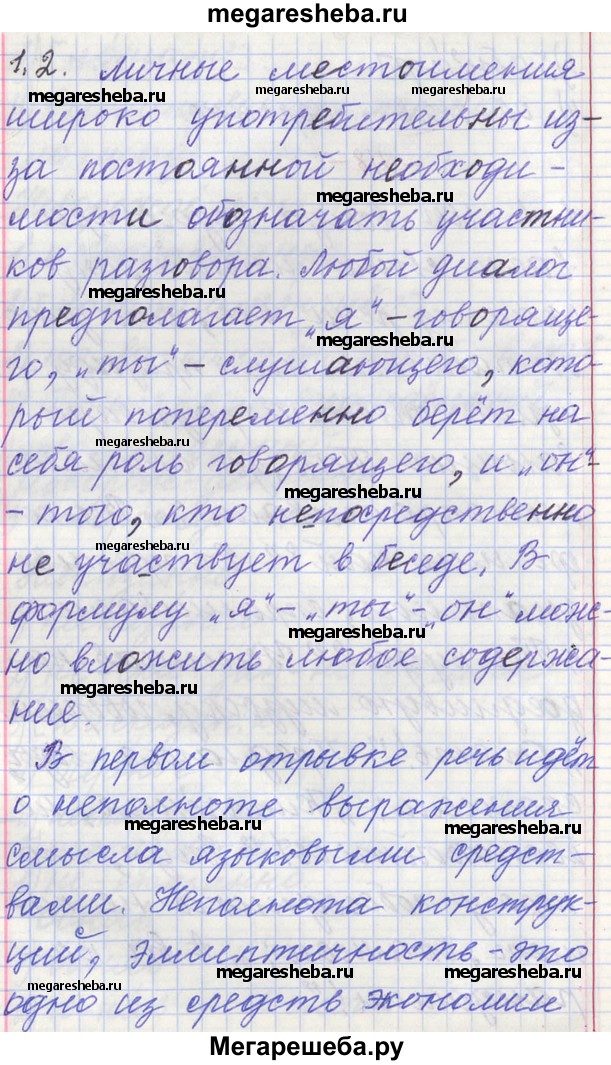 megaresheba.ru
1.2. Личные местоимения
megaresheba.ru megaresheba.ru
широко употребительны из-
за постоянной необходи-
megaresheba.ru
мости обозначать участни-
ков разговора. Любой диалог
megaresheba.ru
предполагает „я“ - говоряще-
megaresheba.ru
го, „ты“ - слушающего, кото-
рый попеременно берёт на
megaresheba.ru
себя роль говорящего, и „он“
megaresheba.ru
- того, кто непосредственно
megaresheba.ru
не участвует в беседе. В
формулу „я“ - „ты“ - „он“ мож-
megaresheba.ru
но вложить любое содержа-
megaresheba.ru
ние.
В первом отрывке речь идёт
о неполноте выражения
megaresheba.ru megaresheba.ru
смысла языковыми средст-
вами. Неполнота конструк-
ций, эллиптичность - это
megaresheba.ru megaresheba.ru megaresheba.ru
одно из средств экономии
Мегарешеба.ру